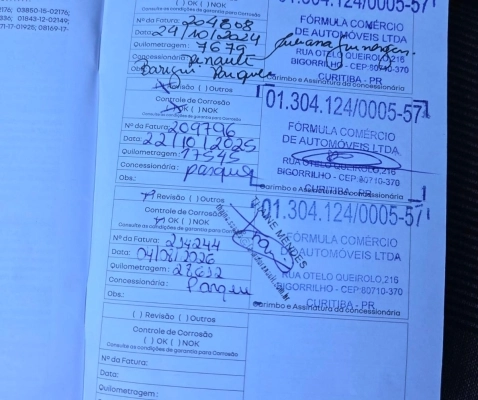 2176; 03850-15-02176;
336; 01843-12-02149;
71-17-01925; 08169-17-
( ) OK ( ) NOK
Consulte as condições de garantia para Corrosão
Nº da Fatura: 204808
Data: 29/10/2024
Quilometragem: 7679
Concessionária: Renault
Barigui Parque
01.304.124/0005-57
FÓRMULA COMÉRCIO
DE AUTOMÓVEIS LTDA
RUA OTELO QUEIROLO,216
BIGORRILHO - CEP:80710-370
CURITIBA - PR
Carimbo e Assinatura da concessionária
Revisão ( ) Outros
Controle de Corrosão
OK ( ) NOK
Nº da Fatura: 209796
Data: 22/10/2025
Quilometragem: 17545
Concessionária: parque
Obs.:
01.304.124/0005-57
FÓRMULA COMÉRCIO
DE AUTOMÓVEIS LTDA
RUA OTELO QUEIROLO,216
BIGORRILHO - CEP:80710-370
CURITIBA - PR
Carimbo e Assinatura da concessionária
Revisão ( ) Outros
Controle de Corrosão
OK ( ) NOK
Consulte as condições de garantia para Corrosão
Nº da Fatura: 214244
Data: 04/08/2026
Quilometragem: 27632
Concessionária: Parque
Obs.:
01.304.124/0005-57
MENDES
FÓRMULA COMÉRCIO
DE AUTOMÓVEIS LTDA
RUA OTELO QUEIROLO,216
BIGORRILHO - CEP:80710-370
CURITIBA - PR
Carimbo e Assinatura da concessionária
( ) Revisão ( ) Outros
Controle de Corrosão
( ) OK ( ) NOK
Consulte as condições de garantia para Corrosão
Nº da Fatura:
Data:
Quilometragem: